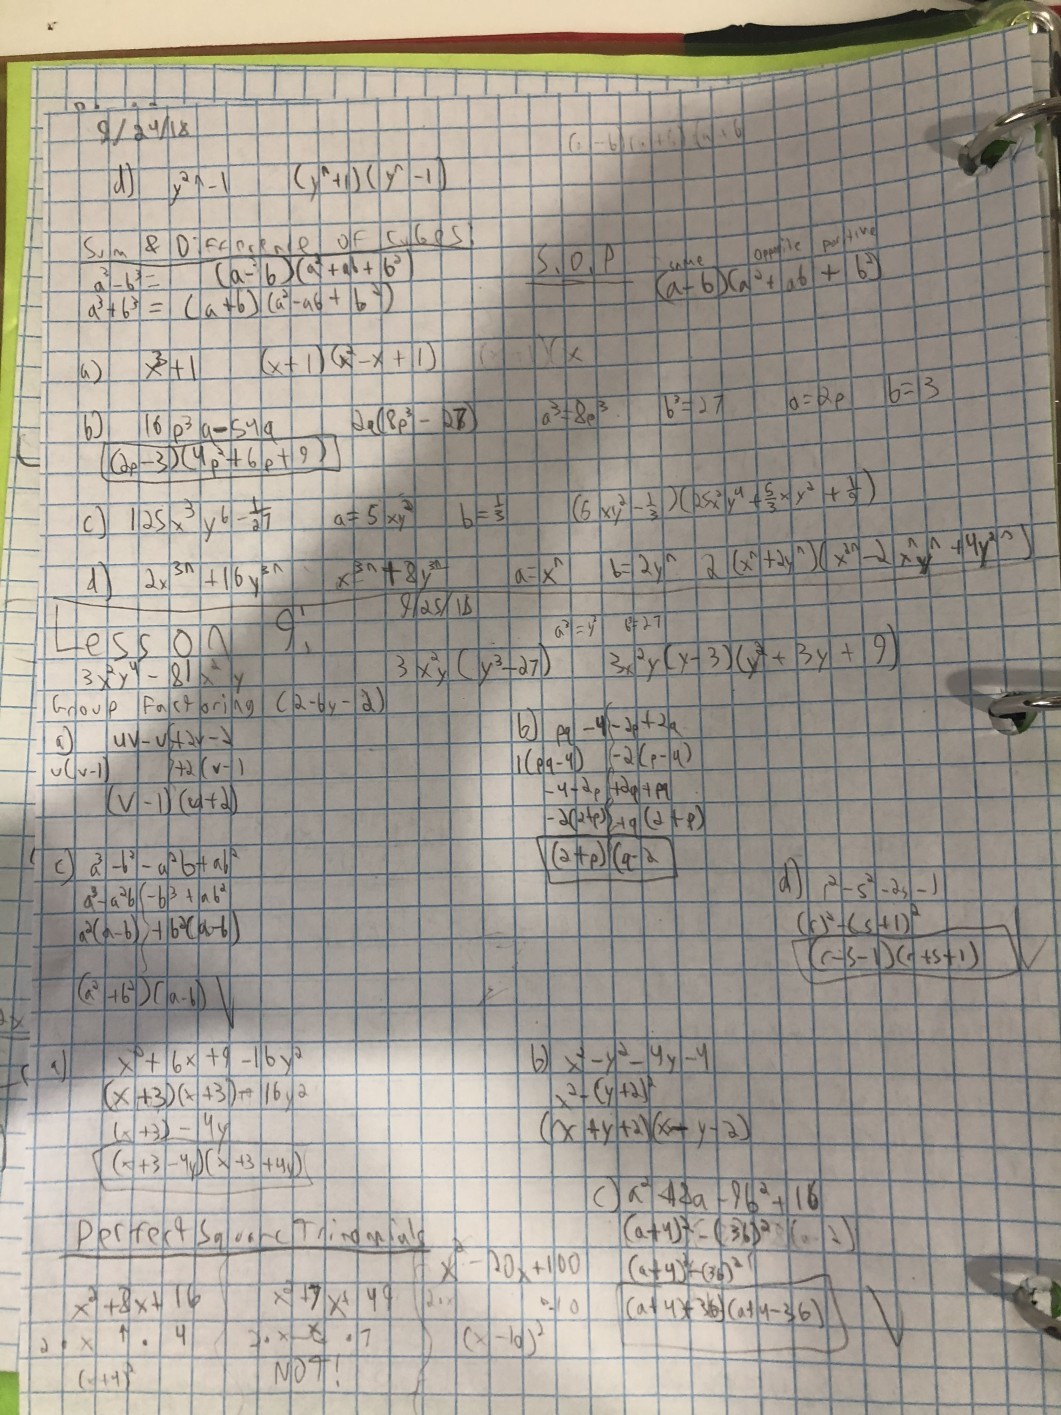 9/24/18
d) y²ⁿ-1 (yⁿ+1)(yⁿ-1)
Sum & Difference of Cubes:
a³-b³= (a-b)(a²+ab+b²)
S.O.P
same opposite positive
(a-b)(a²+ab+b²)
a³+b³ = (a+b)(a²-ab+b²)
a) x³+1 (x+1)(x²-x+1)
b) 16p³q-54q 2q(8p³-27) a³=8p³ b³=27 a=2p b=3
(2p-3)(4p²+6p+9)
c) 125x³y⁶-1/27 a=5xy² b=1/3 (5xy²-1/3)(25x²y⁴+5/3xy²+1/9)
d) 2x³ⁿ+16y³ⁿ x³ⁿ+8y³ⁿ a=xⁿ b=2yⁿ 2(xⁿ+2yⁿ)(x²ⁿ-2xⁿyⁿ+4y²ⁿ)
9/25/18
Lesson 9:
3x²y⁴-81x²y 3x²y(y³-27) 3x²y(y-3)(y²+3y+9)
Group Factoring (2-by-2)
a) uv-u+2v-2
u(v-1) +2(v-1
(v-1)(u+2)
b) pq-4-2p+2q
1(pq-4) -2(p-4)
-4-2p+2q+pq
-2(2+p)+q(2+p)
(2+p)(q-2
c) a³-b³-a²b+ab²
a³-a²b-b³+ab²
a²(a-b)+b²(a-b)
(a²+b²)(a-b)
d) r²-s²-2s-1
(r)²-(s+1)²
(r-s-1)(r+s+1)
a) x²+6x+9-16y²
(x+3)(x+3)-16y²
(x+3)-4y
(x+3-4y)(x+3+4y)
b) x²-y²-4y-4
x²-(y+2)²
(x+y+2)(x-y-2)
c) a²+8a-9b²+16
(a+4)²-(3b)²
(a+4)²-(3b)²
(a+4+3b)(a+4-3b)
Perfect Square Trinomials
x²+8x+16 x²+7x+49 x²-20x+100
2·x·4 2·x·7 -10
(x+4)² NOT! (x-10)²